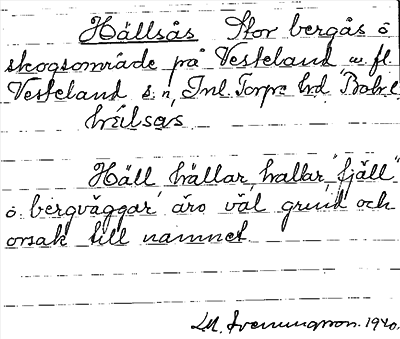 Hällsås Stor bergås o
skogsområde på Vesteland u. fl.
Vesteland s.n, Inl. Torpe hrd Bohl.
hä́lsås
Häll hällar, hallar, "fjäll"
o. bergväggar äro väl grund och
orsak till namnet
M. Svenungsson. 1940.